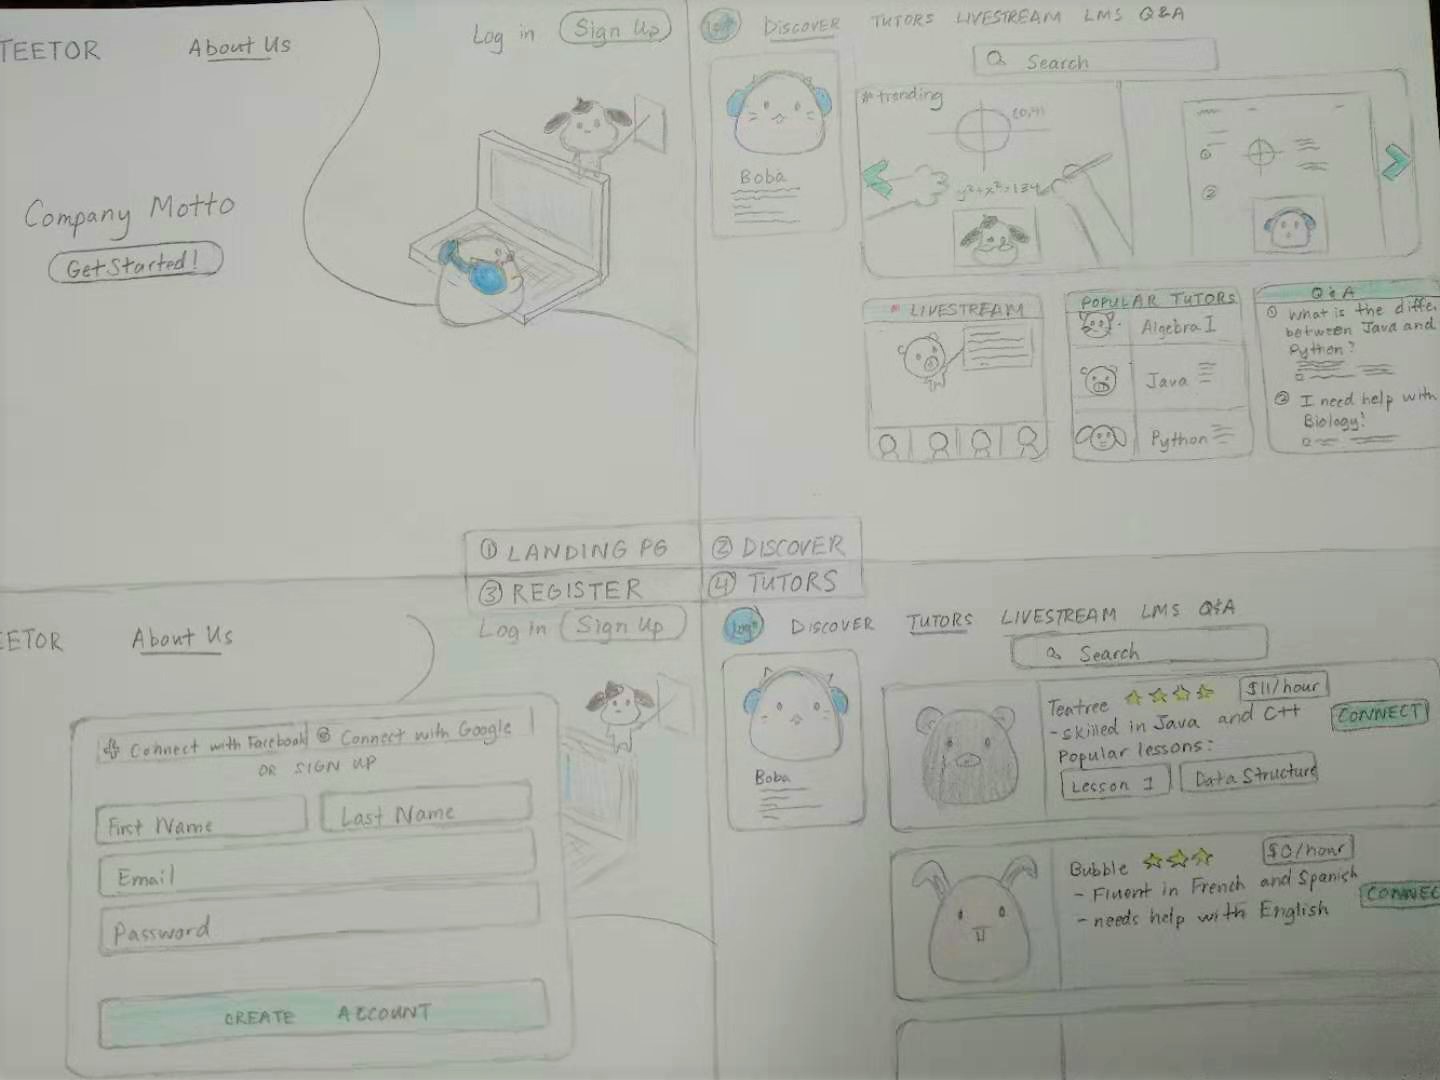 TEETOR
About Us
Log in
Sign Up
Company Motto
Get Started!
Logo
DISCOVER
TUTORS
LIVESTREAM
LMS
Q&A
Search
Boba
#trending
(0,4)
①
②
LIVESTREAM
POPULAR TUTORS
Algebra I
Java
Python
Q&A
① What is the diffe
between Java and
Python?
② I need help with
Biology!
① LANDING PG
② DISCOVER
③ REGISTER
④ TUTORS
EETOR
About Us
Log in
Sign Up
Connect with Facebook
Connect with Google
OR SIGN UP
First Name
Last Name
Email
Password
CREATE ACCOUNT
Logo
DISCOVER
TUTORS
LIVESTREAM
LMS
Q&A
Search
Boba
Teatree
$11/hour
-skilled in Java and C++
CONNECT
Popular lessons:
Lesson 1
Data Structure
Bubble
$0/hour
- Fluent in French and Spanish
CONNEC
- needs help with English